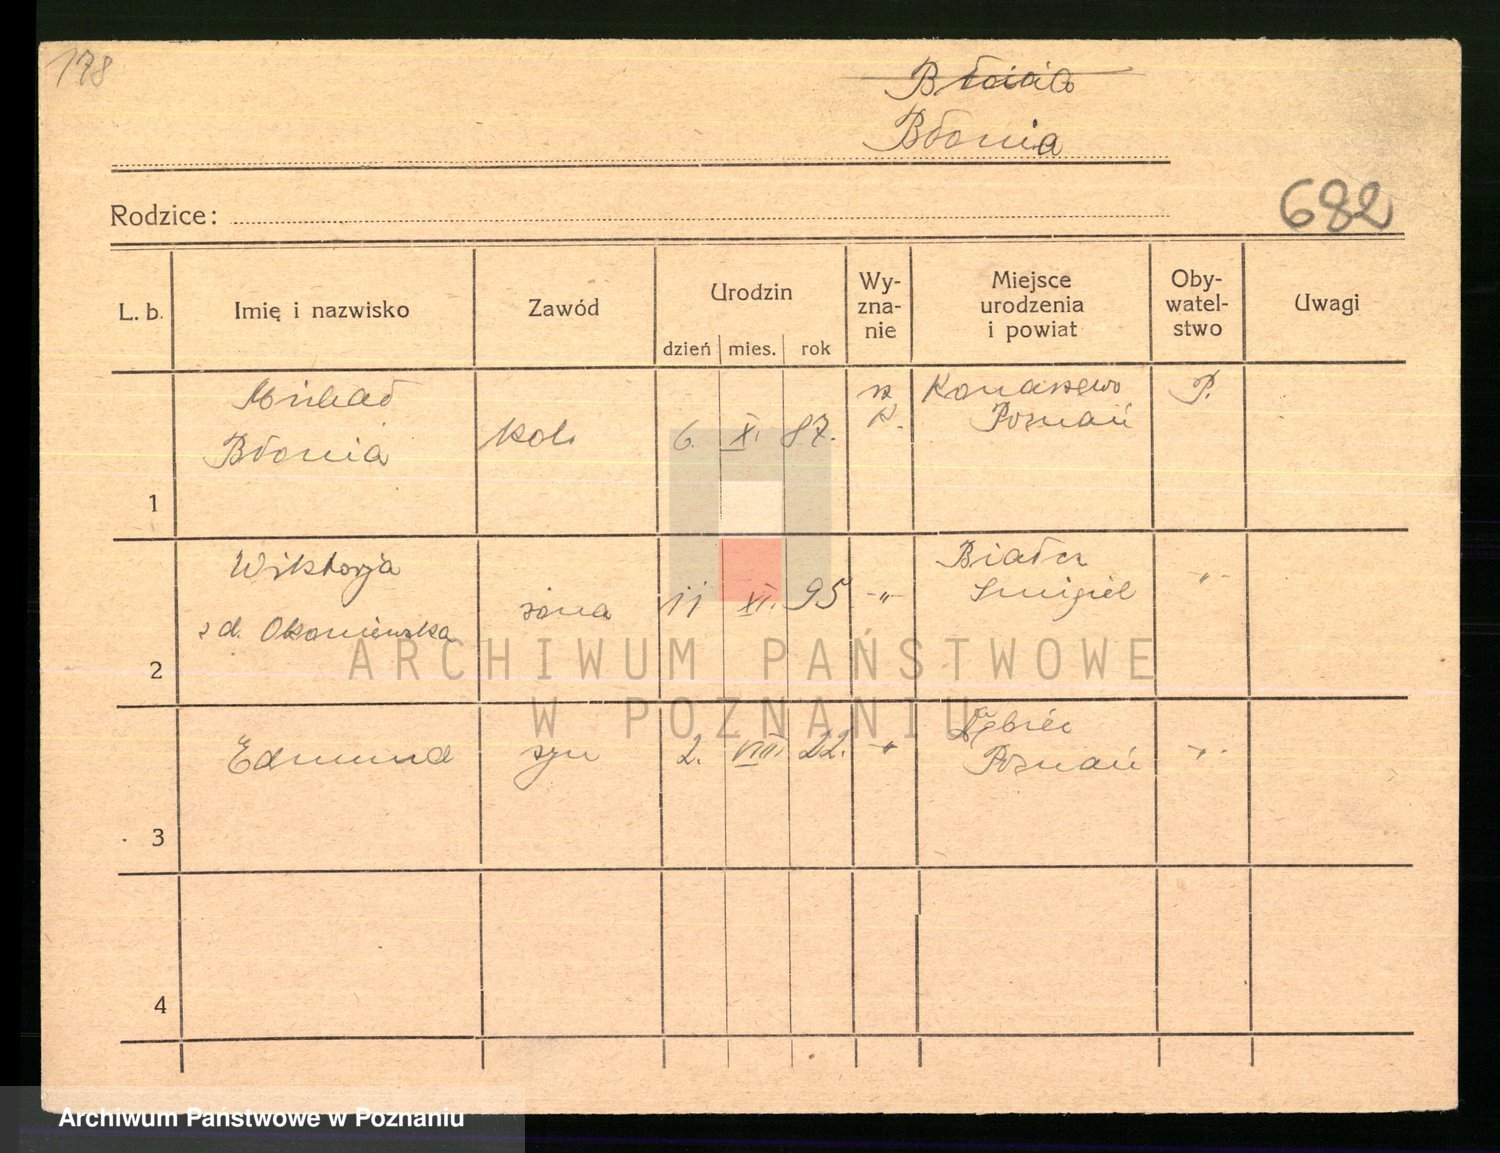 178
Błonia
Rodzice:
682
L. b.
Imię i nazwisko
Zawód
Urodzin
dzień mies. rok
Wy-
zna-
nie
Miejsce
urodzenia
i powiat
Oby-
watel-
stwo
Uwagi
1
Michał
Błonia
kol.
6. X. 87.
rz
k.
Konarzewo
Poznań
P.
2
Wiktorja
z d. Okoniewska
żona
11 XI. 95
-„-
Białcz
Śmigiel
-„-
3
Edmund
syn
2. VIII. 22.
-„-
Dębiec
Poznań
-„-
4
ARCHIWUM PAŃSTWOWE
W POZNANIU
Archiwum Państwowe w Poznaniu